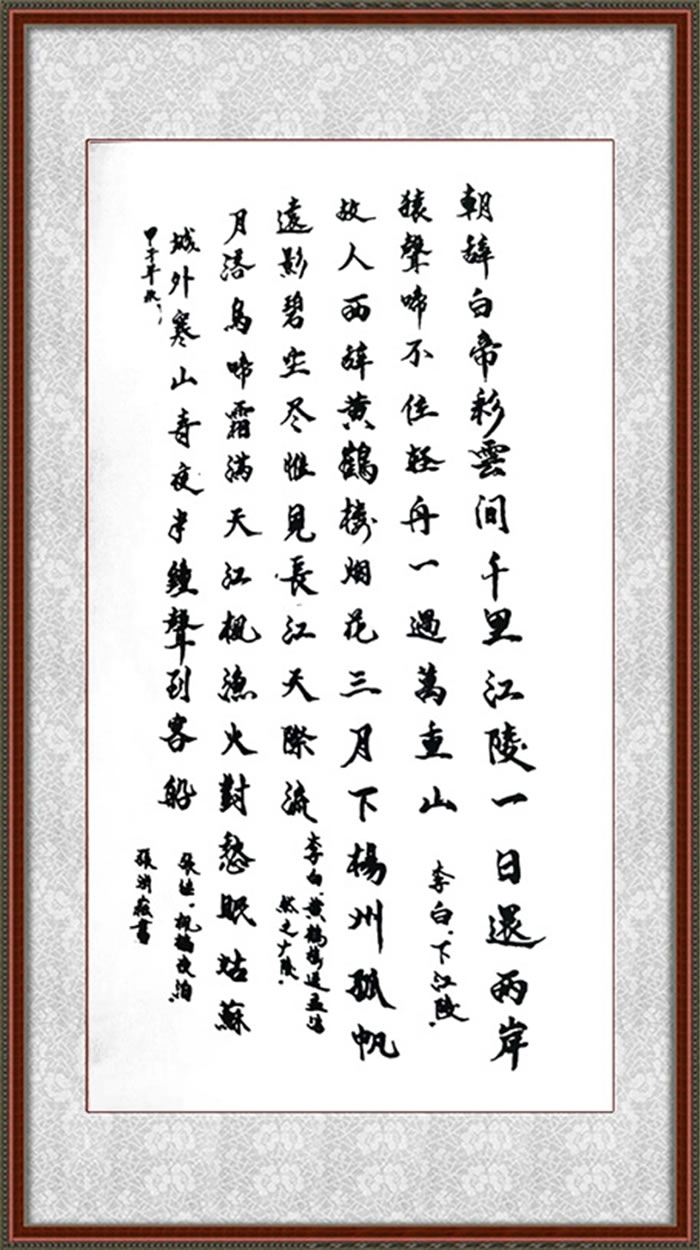 朝辞白帝彩雲间千里江陵一日還两岸
猿聲啼不住轻舟一過萬重山
李白·下江陵·
故人西辞黄鶴楼烟花三月下楊州孤帆
遠影碧空尽惟見長江天際流
李白·黄鶴楼送孟浩
然之广陵·
月落烏啼霜满天江楓漁火對愁眠姑蘇
城外寒山寺夜半鐘聲到客船
張继·楓橋夜泊·
甲子年秋
張書